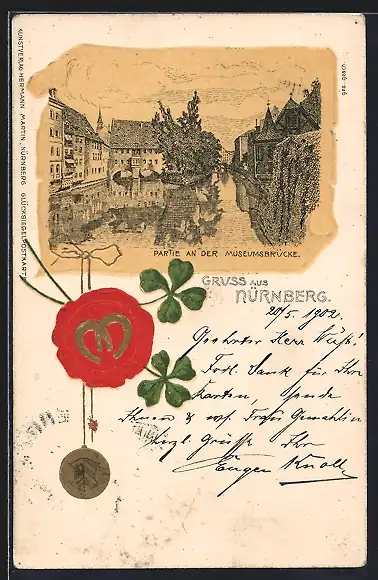 KUNSTVERLAG HERMANN MARTIN, NÜRNBERG GLÜCKSIEGELPOSTKARTE
ges. gesch.
PARTIE AN DER MUSEUMSBRÜCKE.
GRUSS AUS
NÜRNBERG.
20/5. 1902.
Geehrter Herr Wüß!
Frdl. Dank für Ihre
Karten, sende
Ihnen & Gemahlin
herzl. Grüsse Ihr
Eugen Knoll